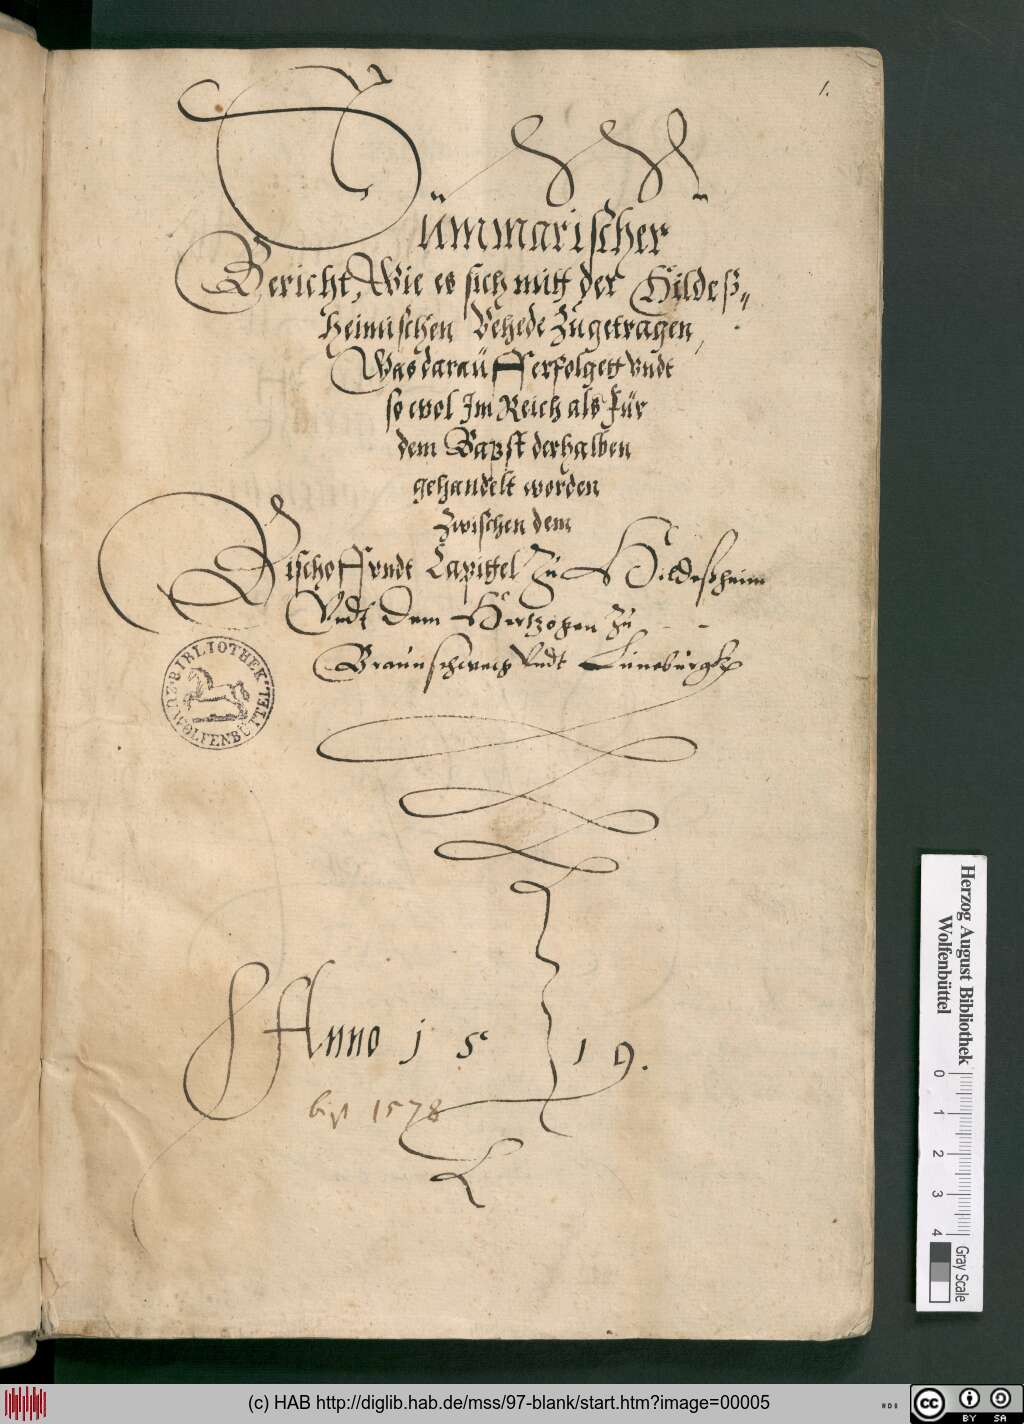 1.
Summarischer
Bericht, Wie es sich mitt der Hildeß„
heimischen Vehede Zugetragen,
Was darauff erfolgett vndt
so wol Im Reich als Für
dem Bapst derhalben
gehandelt worden
Zwischen dem
Bischoff vndt Capittel Zu Hildeßheim
Vndt dem Hertzogen zu
Braunschweig Vndt Lüneburgk
BIBLIOTHEK ZU WOLFENBÜTTEL
Anno 1519.
biß 1578
Herzog August Bibliothek
Wolfenbüttel
0 1 2 3 4
Gray Scale
(c) HAB http://diglib.hab.de/mss/97-blank/start.htm?image=00005
HAB
cc BY SA